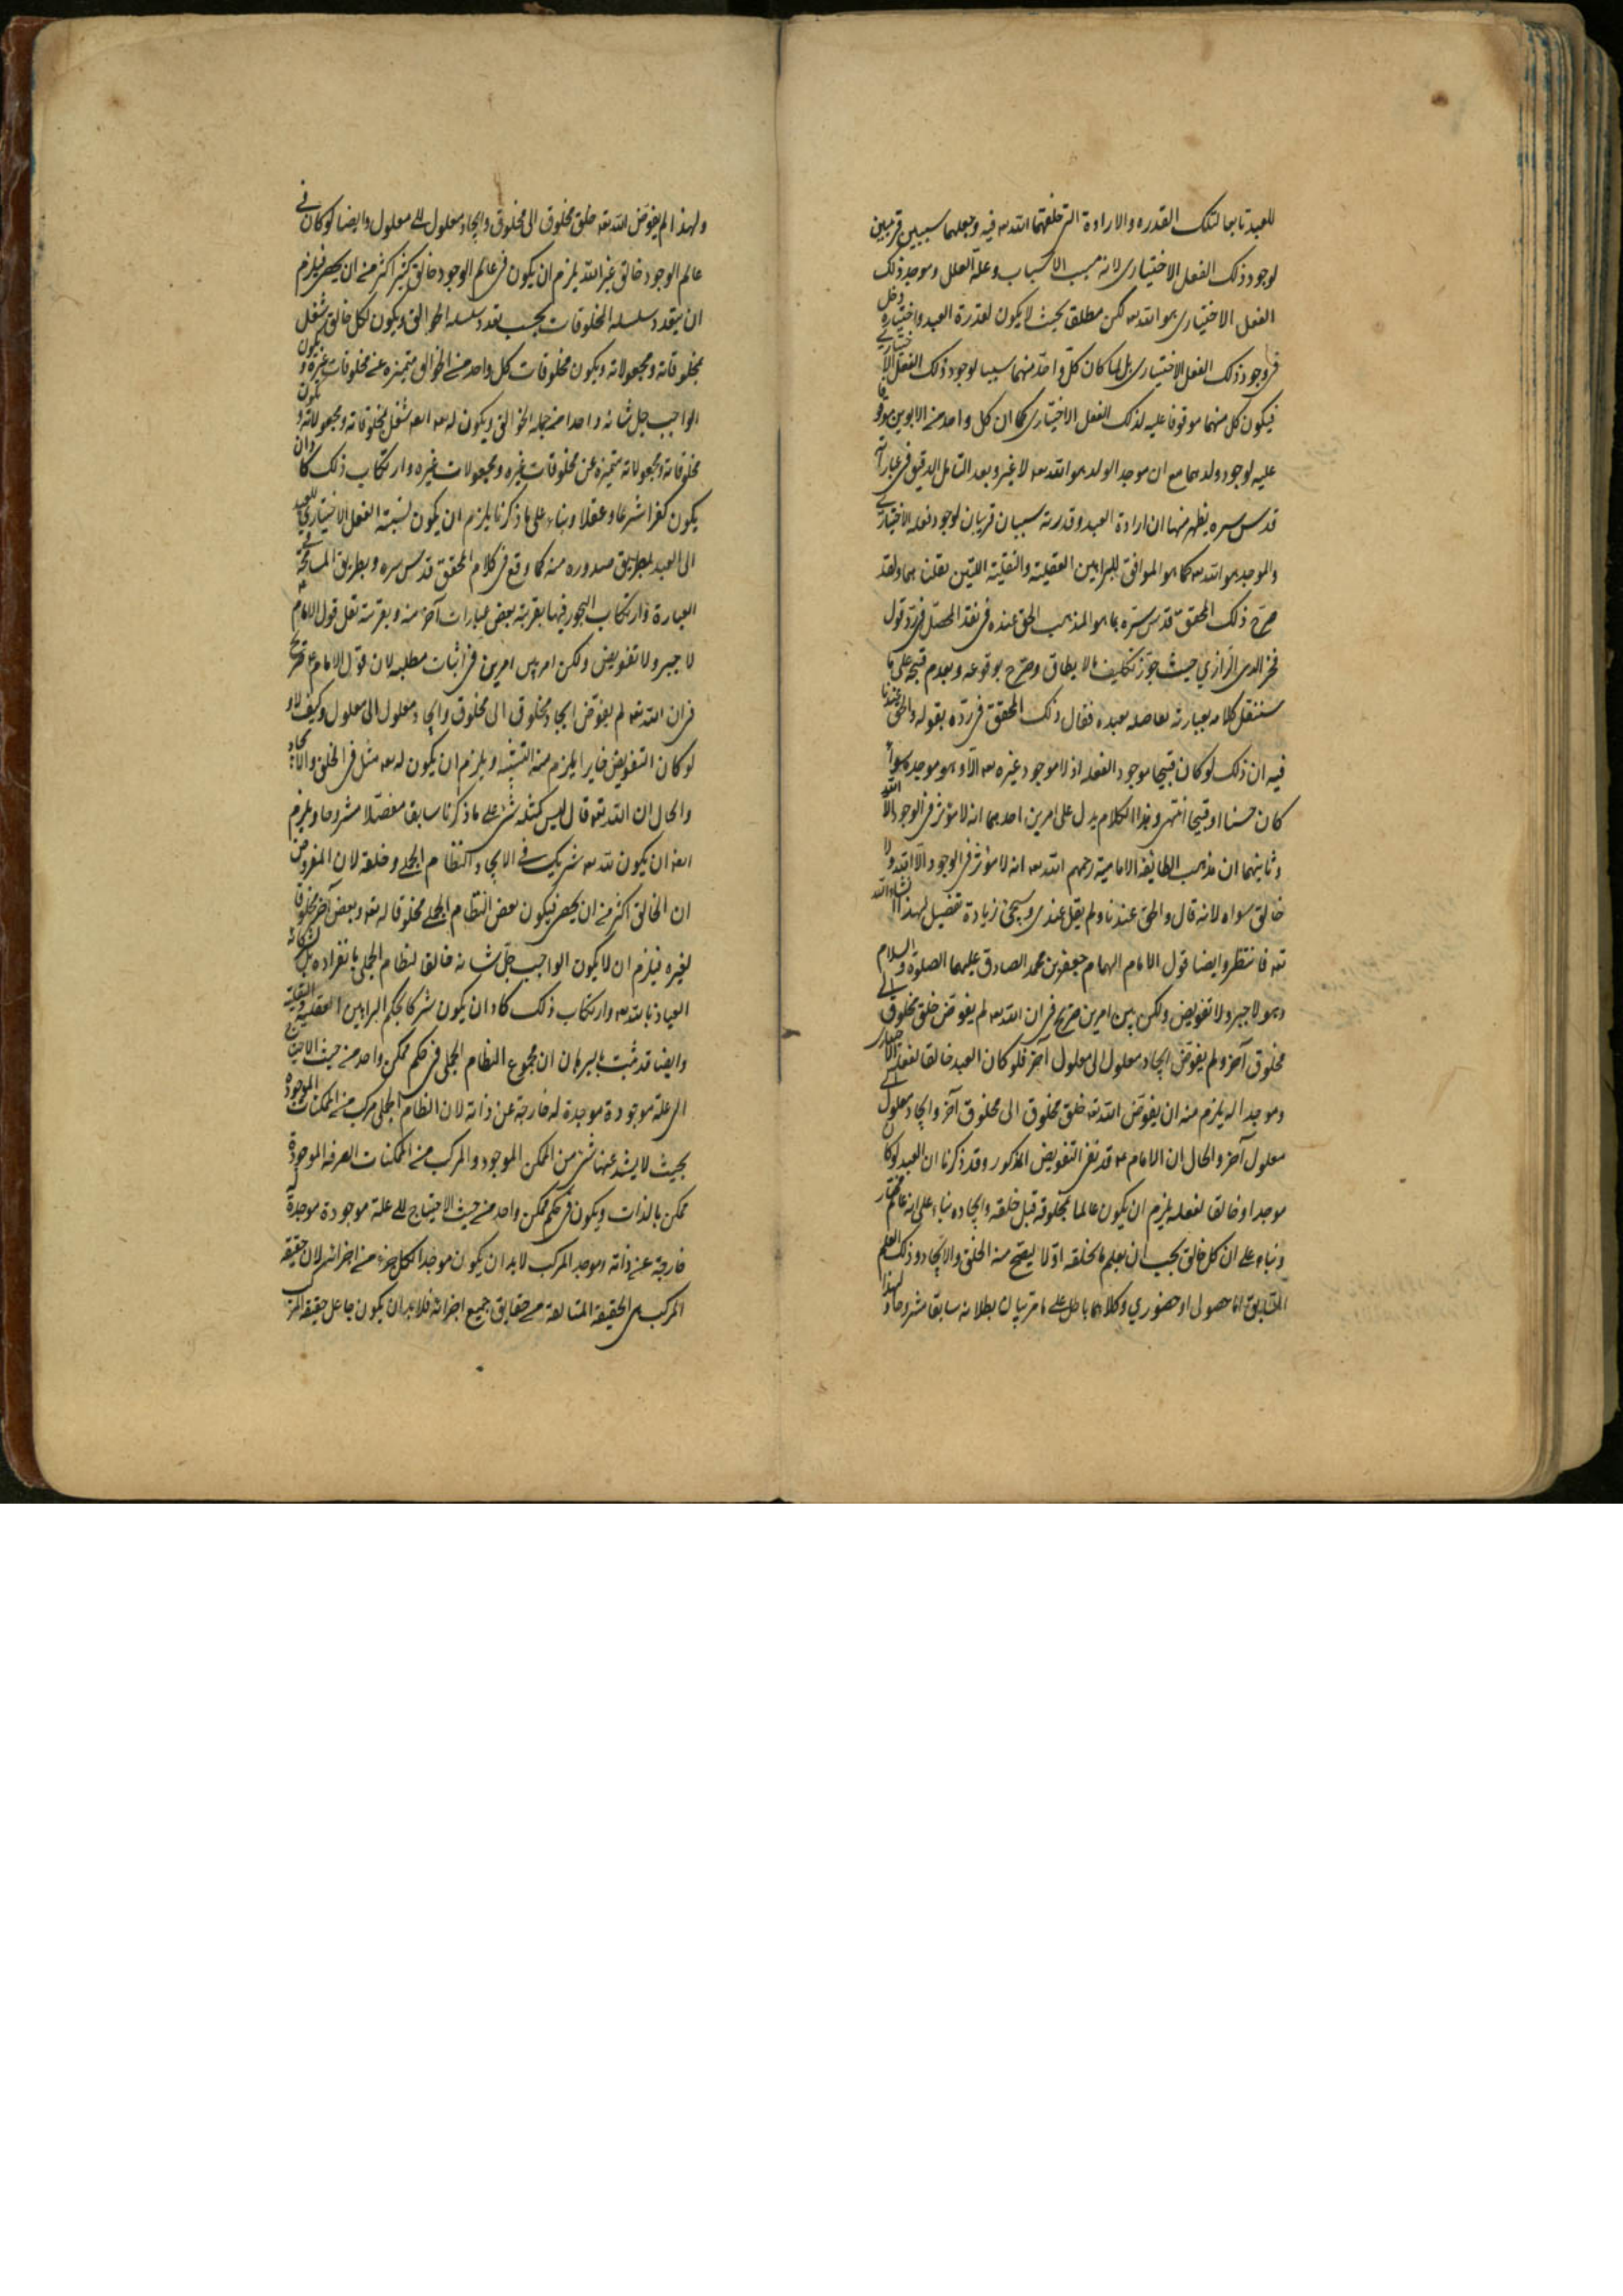 للعبد تابعا لتلك القدره والارادة التى خلقهما الله تعه فيه وجعلهما سببين قريبين
لوجود ذلك الفعل الاختيارى لانه مسبب الاسباب وعلة العلل وموجد ذلك
الفعل الاختيارى هو الله تعه لكن مطلق بحيث لا يكون لقدرة العبد واختياره دخل
فى وجود ذلك الفعل الاختيارى بل لما كان كل واحد منهما سببا لوجود ذلك الفعل الاختيارى
فيكون كل منهما موقوفا عليه لذلك الفعل الاختيارى كما ان كل واحد من الابوين موقوفا
عليه لوجود ولدهما مع ان موجد الولد هو الله تعه لا غير وبعد التامل الدقيق فى عباراته
قدس سره يظهر منها ان ارادة العبد وقدرته سببان قريبان لوجود فعله الاختيارى
والموجد هو الله تعه كما هو الموافق للبراهين العقلية والنقلية اللتين نقلنا هما ولقد
صرح ذلك المحقق قدس سره بما هو المذهب الحق عنده فى نقد المحصل فى رد قول
فخر الدين الرازي حيث جوز تكليف ما لا يطاق وصرح بوقوعه وبعدم قبحه على ما
سننقل كلامه بعبارته بعاصله بعيده فقال ذلك المحقق فى رده بقوله والحق عندنا
فيه ان ذلك لو كان قبيحا موجود الفعله اذ لا موجود غيره تعه الا وهو موجده سواء
كان حسنا او قبيحا انتهى وهذا الكلام يدل على امرين احدهما انه لا مؤثر فى الوجود الا الله
وثانيهما ان مذهب الطايفة الامامية رحمهم الله تعه انه لا مؤثر فى الوجود الا الله ولا
خالق سواه لانه قال والحق عندنا ولم يقل عندى وسيجئ زيادة تفصيل لهذا انشاء الله
تعه فانتظر وايضا قول الامام الهمام جعفر بن محمد الصادق عليهما الصلوة والسلام
وهو لا جبر ولا تفويض ولكن بين امرين صريح فى ان الله تعه لم يفوض خلق مخلوق الى
مخلوق آخر ولم يفوض ايجاد معلول الى معلول آخر فلو كان العبد خالقا لفعله الاختيارى
وموجدا له يلزم منه ان يفوض الله تعه خلق مخلوق الى مخلوق آخر وايجاد معلول الى
معلول آخر والحال ان الامام عه قد نفى التفويض المذكور وقد ذكرنا ان العبد لو كان
موجدا وخالقا لفعله يلزم ان يكون عالما بمخلوقه قبل خلقه وايجاده بناء على انه عالم مختار
وبناء على ان كل خالق يجب ان يعلم ما يخلقه اولا ليصح منه الخلق والايجاد وذلك العلم
السابق اما حصولى او حضوري وكلاهما باطل على ما مر بيان بطلانه سابقا مشروحا ولهذا
ولهذا لم يفوض الله تعه خلق مخلوق الى مخلوق وايجاد معلول الى معلول وايضا لو كان فى
عالم الوجود خالق غير الله يلزم ان يكون فى عالم الوجود خالق كثير اكثر من ان يحصى فيلزم
ان يتعدد سلسله المخلوقات بحسب تعدد سلسله الخوالق ويكون لكل خالق شغل
بمخلوقاته ومجعولاته ويكون مخلوقات كل واحد من الخوالق متميزه عن مخلوقات غيره ويكون
الواجب جل شانه واحدا من جمله الخوالق ويكون له تعه ايضا شغل بمخلوقاته ومجعولاته ويكون
مخلوقاته ومجعولاته متميزه عن مخلوقات غيره ومجعولات غيره وارتكاب ذلك كاد ان
يكون كفرا شرعا وعقلا وبناء على ما ذكرنا يلزم ان يكون نسبة الفعل الاختياري للعبد
الى العبد بطريق صدوره منه كما وقع فى كلام المحقق قدس سره وبطريق المسامحة فى
العبارة وارتكاب التجوز فيها بقرينة بعض عبارات آخر منه وبقرينة نقل قول الامام عه
لا جبر ولا تفويض ولكن امر بين امرين فى اثبات مطلبه لان قول الامام عه صريح
فى ان الله تعه لم يفوض ايجاد مخلوق الى مخلوق وايجاد معلول الى معلول وكيف لا و
لو كان التفويض جايزا يلزم منه التشبيه ويلزم ان يكون له تعه مثل فى الخلق والايجاد
والحال ان الله تعه قال ليس كمثله شئ على ما ذكرنا سابقا مفصلا مشروحا ويلزم
ايضا ان يكون لله تعه شريك فى الايجاد النظام الجملي وخلقه لان المفروض
ان الخالق اكثر من ان يحصى فيكون بعض النظام الجملي مخلوقا له تعه وبعض آخر مخلوقا
لغيره فيلزم ان لا يكون الواجب جل شانه خالقا لنظام الجملي بانفراده بل بشركائه
العياذ بالله تعه وارتكاب ذلك كاد ان يكون شركا بحكم البراهين العقلية والنقلية
وايضا قد ثبت بالبرهان ان مجموع النظام الجملي فى حكم ممكن واحد من حيث الاحتياج
الى علة موجودة موجدة له خارجة عن ذاته لان النظام الجملي مركب من الممكنات الموجودة
بحيث لا يشذ عنها شئ من الممكن الموجود والمركب من الممكنات الصرفه الموجودة
ممكن بالذات ويكون فى حكم ممكن واحد من حيث الاحتياج الى علة موجودة موجدة له
خارجة عن ذاته وموجد المركب لابد ان يكون موجدا لكل جزء من اجزائه لان حقيقه
المركب هى الحقيقة المتالفة من حقايق جميع اجزائه فلابد ان يكون جاعل حقيقة المركب